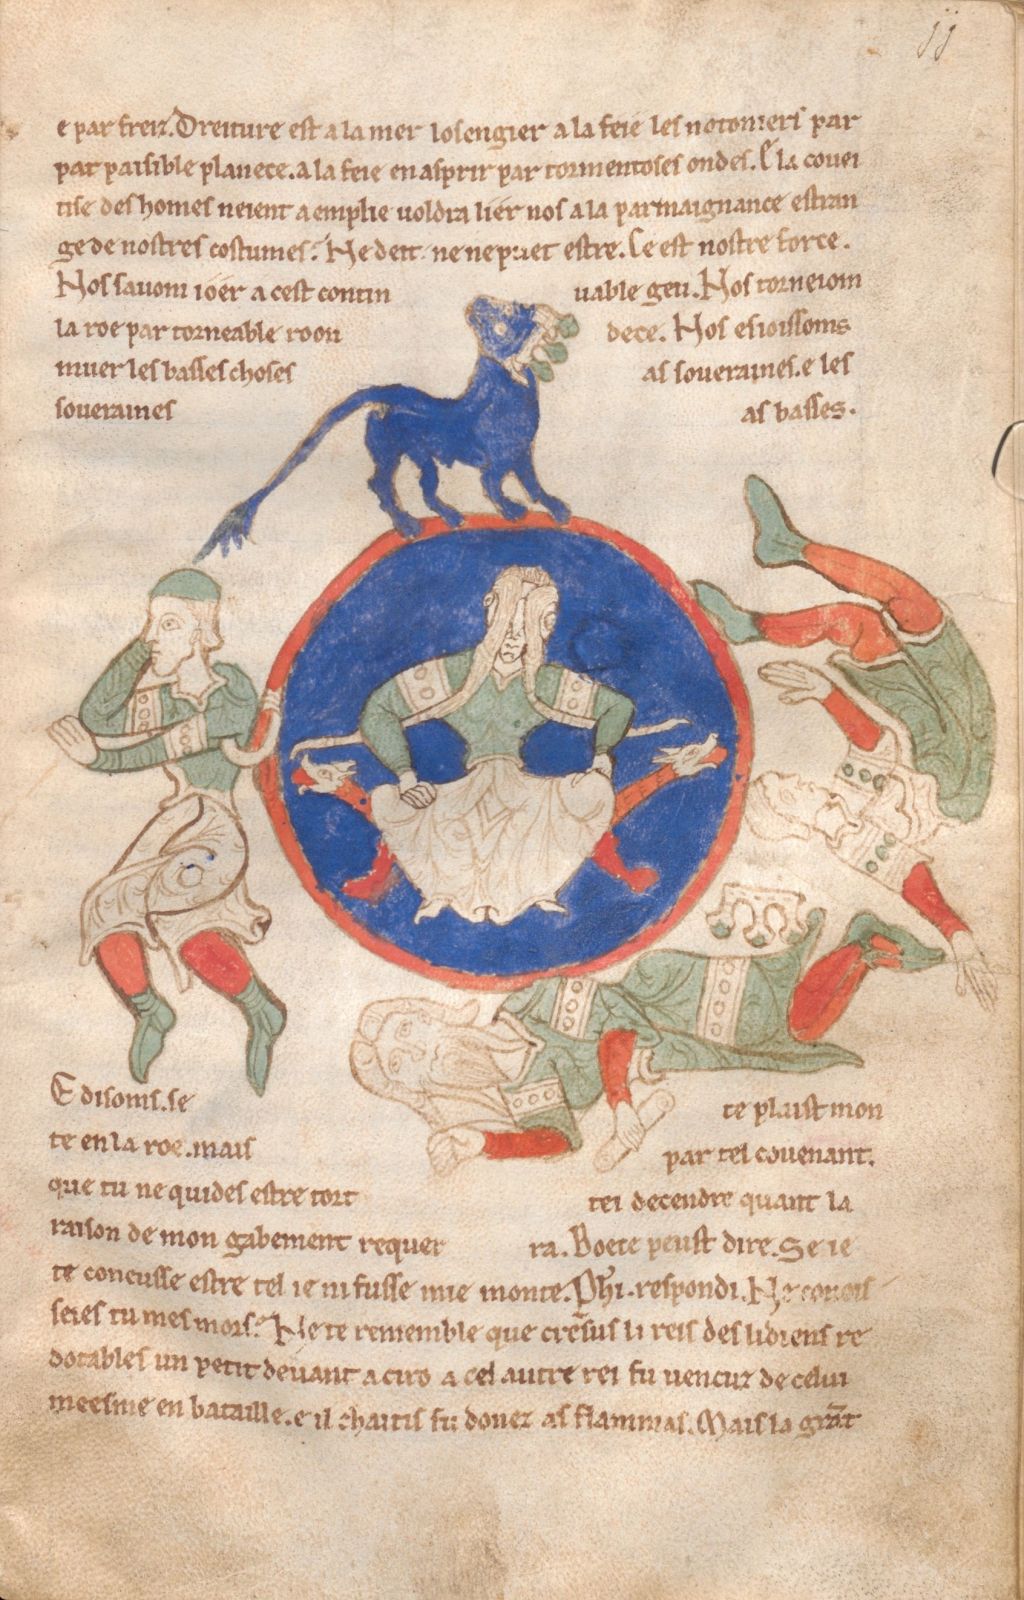 jj
e par freiz. Dreiture est a la mer losengier a la feie les notoniers par
par paisible planece. a la feie en asprir par tormentoses ondes. E la covei
tise des homes neient aemplie voldra lier nos a la parmaignance estran
ge de nostres costumes? Ne deit ne ne puet estre. Ce est nostre force.
Nos savom ioer a cest contin uable geu. Nos torneiom
la roe par torneable roon dece. Nos esioissoms
muer les basses choses as soveraines. e les
soveraines as basses.
E disoms. se te plaist mon
te en la roe. mais par tel covenant.
que tu ne quides estre tort tei decendre quant la
raison de mon gabement requer ra. Boece peust dire. Se ie
te coneusse estre tel ie ni fusse mie monte. Phi. respondi. Ne conois
seies tu mes mors? Ne te remembre que cresus li reis des lidiens re
dotables un petit devant a ciro a cel autre rei fu vencuz de celui
meesme en bataille. e il chaitis fu donez as flammas. Mais la grāt